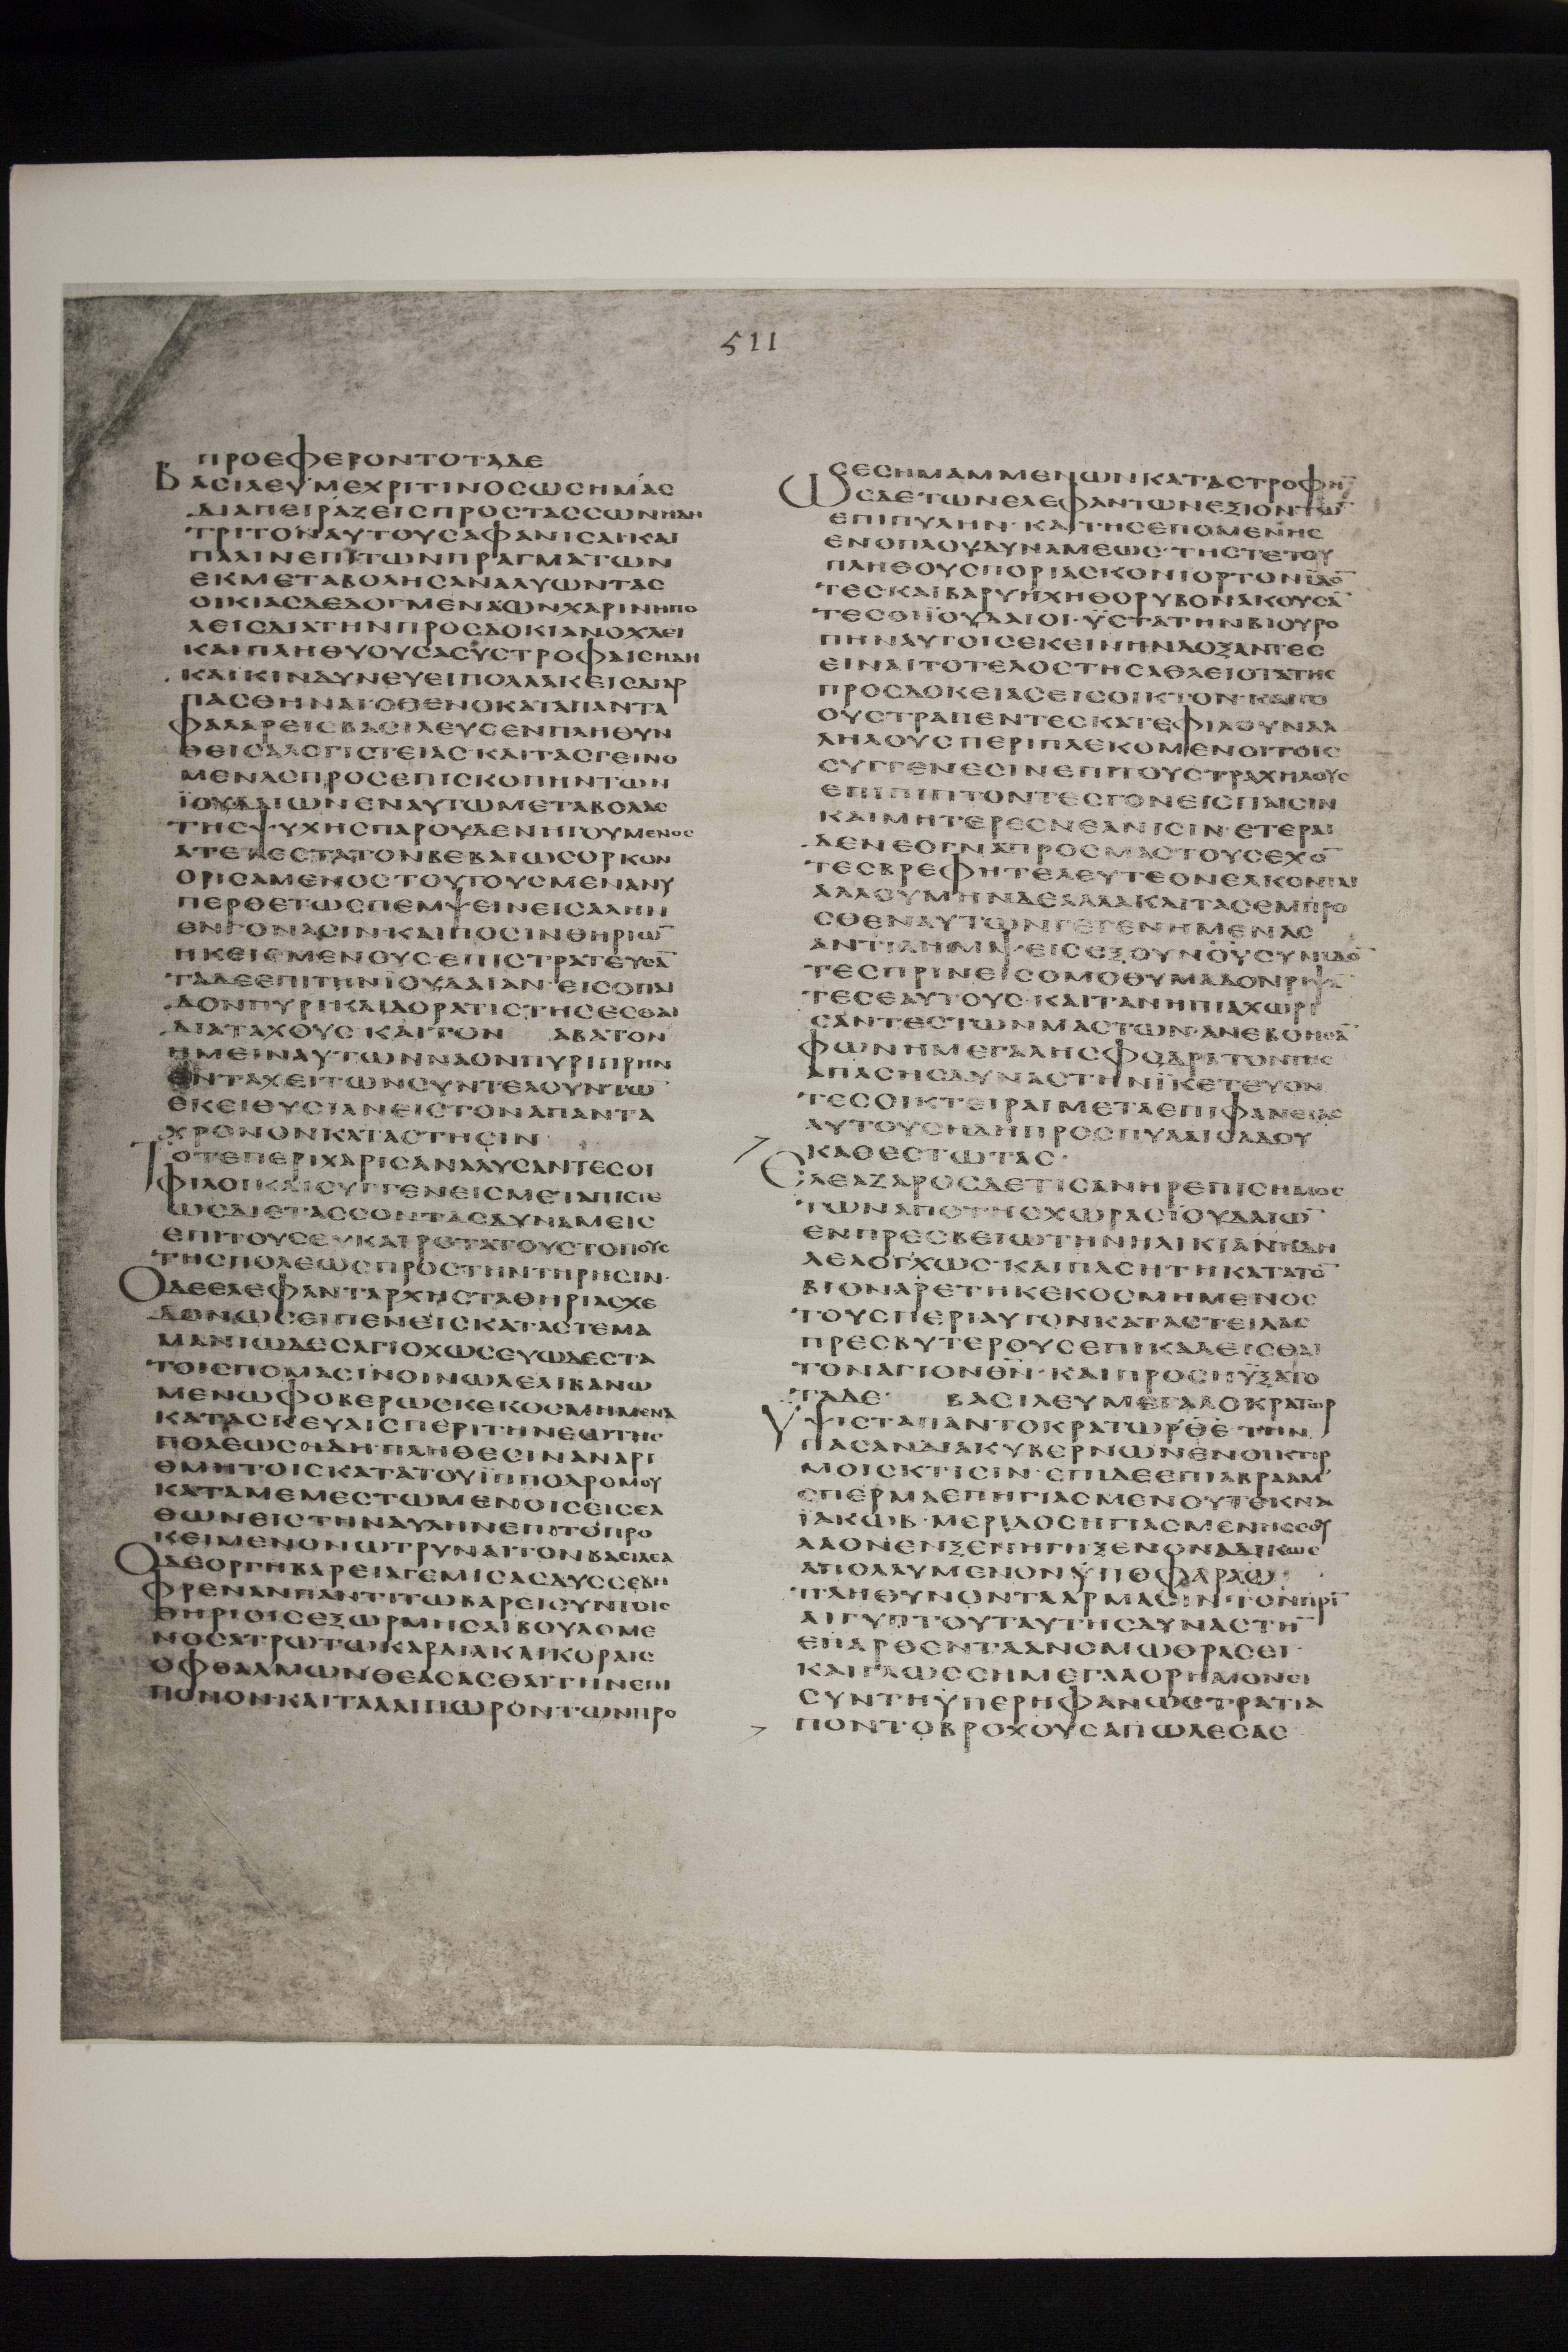 511
ΠΡΟΕΦΕΡΟΝΤΟΤΑΔΕ
ΒΑCΙΛΕΥΜΕΧΡΙΤΙΝΟCΩCΗΜΑC
ΔΙΑΠΕΙΡΑΖΕΙCΠΡΟCΤΑCCΩΝΗΔΗ
ΤΡΙΤΟΝΑΥΤΟΥCΑΦΑΝΙCΑΙΚΑΙ
ΠΑΛΙΝΕΠΙΤΩΝΠΡΑΓΜΑΤΩΝ
ΕΚΜΕΤΑΒΟΛΗCΑΝΑΛΥΩΝΤΑC
ΟΙΚΙΑCΔΕΔΟΓΜΕΝΑΩΝΧΑΡΙΝΗΠΟ
ΛΕΙCΔΙΑΤΗΝΠΡΟCΔΟΚΙΑΝΟΧΛΕΙ
ΚΑΙΠΛΗΘΥΟΥCΑCΥCΤΡΟΦΑΙCΗΔΗ
ΚΑΙΚΙΝΔΥΝΕΥΕΙΠΟΛΛΑΚΕΙCΔΙΑΡ
ΠΑCΘΗΝΑΙΟΘΕΝΟΚΑΤΑΠΑΝΤΑ
ΦΑΛΑΡΕΙCΒΑCΙΛΕΥCΕΝΠΛΗΘΥΝ
ΘΕΙCΑΛΟΓΙCΤΕΙΑC·ΚΑΙΤΑCΓΕΙΝΟ
ΜΕΝΑCΠΡΟCΕΠΙCΚΟΠΗΝΤΩΝ
ΪΟΥΔΑΙΩΝΕΝΑΥΤΩΜΕΤΑΒΟΛΑC
ΤΗCΨΥΧΗCΠΑΡΟΥΔΕΝΗΓΟΥΜΕΝΟC
ΑΤΕΛΕCΤΑΤΟΝΒΕΒΑΙΩCΟΡΚΟΝ
ΟΡΙCΑΜΕΝΟCΤΟΥΤΟΥCΜΕΝΑΝΥ
ΠΕΡΘΕΤΩCΠΕΜΨΕΙΝΕΙCΑΔΗΝ
ΕΝΓΟΝΑCΙΝ·ΚΑΙΠΟCΙΝΘΗΡΙΩ̄
ΗΚΕΙCΜΕΝΟΥCΕΠΙCΤΡΑΤΕΥCᾹ
ΤΑΔΕΕΠΙΤΗΝΪΟΥΔΑΙΑΝ·ΕΙCΟΠΑΙ
ΔΟΝΠΥΡΙΚΑΙΔΟΡΑΤΙCΤΗCΕCΘΑΙ
ΔΙΑΤΑΧΟΥC·ΚΑΙΤΟΝ ΑΒΑΤΟΝ
ΗΜΕΙΝΑΥΤΩΝΝΑΟΝΠΥΡΙΠΡΗΝ
ΕΝΤΑΧΕΙΤΩΝCΥΝΤΕΛΟΥΝΤΩ̄
ΕΚΕΙΘΥCΙΑΝΕΙCΤΟΝΑΠΑΝΤΑ
ΧΡΟΝΟΝΚΑΤΑCΤΗCΙΝ
ΤΟΤΕΠΕΡΙΧΑΡΙCΑΝΑΛΥCΑΝΤΕCΟΙ
ΦΙΛΟΙΚΑΙCΥΓΓΕΝΕΙCΜΕΤΑΠΙCΤΕ
ΩCΔΙΕΤΑCCΟΝΤΑCΔΥΝΑΜΕΙC
ΕΠΙΤΟΥCΕΥΚΑΙΡΟΤΑΤΟΥCΤΟΠΟΥC
ΤΗCΠΟΛΕΩCΠΡΟCΤΗΝΤΗΡΗCΙΝ·
ΟΔΕΕΛΕΦΑΝΤΑΡΧΗCΤΑΘΗΡΙΑCΧΕ
ΔΟΝΩCΕΙΠΕΝΕΙCΚΑΤΑCΤΕΜΑ
ΜΑΝΙΩΔΕCΑΓΙΟΧΩCΕΥΩΔΕCΤΑ
ΤΟΙCΠΟΜΑCΙΝΟΙΝΩΔΕΛΙΒΑΝΩ
ΜΕΝΩΦΟΒΕΡΩCΚΕΚΟCΜΗΜΕΝΑ
ΚΑΤΑCΚΕΥΑΙCΠΕΡΙΤΗΝΕΩΤΗC
ΠΟΛΕΩCΗΔΗΠΛΗΘΕCΙΝΑΝΑΡΙ
ΘΜΗΤΟΙCΚΑΤΑΤΟΥΪΠΠΟΔΡΟΜΟΥ
ΚΑΤΑΜΕΜΕCΤΩΜΕΝΟΙCΕΙCΕΛ
ΘΩΝΕΙCΤΗΝΑΥΛΗΝΕΠΙΤΟΠΡΟ
ΚΕΙΜΕΝΟΝΩΤΡΥΝΑΙΤΟΝΒΑCΙΛΕΑ
ΟΔΕΟΡΓΗΒΑΡΕΙΑΓΕΜΙCΑCΔΥCCΕΒΗ
ΦΡΕΝΑΝΠΑΝΤΙΤΩΒΑΡΕΙCΥΝΤΟΙC
ΘΗΡΙΟΙCΕΞΩΡΜΗCΑΙΒΟΥΛΟΜΕ
ΝΟCΑΤΡΩΤΩΚΑΡΔΙΑΚΑΙΚΟΡΑΙC
ΟΦΘΑΛΜΩΝΘΕΑCΑCΘΑΙΤΗΝΕΠΙ
ΠΟΝΟΝ·ΚΑΙΤΑΛΑΙΠΩΡΟΝΤΩΝΠΡΟ
CΕCΗΜΑΜΜΕΝΩΝΚΑΤΑCΤΡΟΦΗ̄
ΩCΔΕΤΩΝΕΛΕΦΑΝΤΩΝΕΞΙΟΝΤΩ̄
ΕΠΙΠΥΛΗΝ·ΚΑΙΤΗCΕΠΟΜΕΝΗC
ΕΝΟΠΛΟΥΔΥΝΑΜΕΩC·ΤΗCΤΕΤΟΥ
ΠΛΗΘΟΥCΠΟΡΙΑCΚΟΝΙΟΡΤΟΝΪΔΟ̄
ΤΕCΚΑΙΒΑΡΥΗΧΗΘΟΡΥΒΟΝΑΚΟΥCᾹ
ΤΕCΟΙΪΟΥΔΑΙΟΙ·ΫCΤΑΤΗΝΒΙΟΥΡΟ
ΠΗΝΑΥΤΟΙCΕΚΕΙΝΗΝΔΟΞΑΝΤΕC
ΕΙΝΑΙΤΟΤΕΛΟCΤΗCΑΘΛΕΙΟΤΑΤΗC
ΠΡΟCΔΟΚΕΙΑCΕΙCΟΙΚΤΟΝ·ΚΑΙΓΟ
ΟΥCΤΡΑΠΕΝΤΕCΚΑΤΕΦΙΛΟΥΝΑΛ
ΛΗΛΟΥCΠΕΡΙΠΛΕΚΟΜΕΝΟΙΤΟΙC
CΥΓΓΕΝΕCΙΝΕΠΙΤΟΥCΤΡΑΧΗΛΟΥC
ΕΠΙΠΙΠΤΟΝΤΕCΓΟΝΕΙCΠΑΙCΙΝ
ΚΑΙΜΗΤΕΡΕCΝΕΑΝΙCΙΝ·ΕΤΕΡΑΙ
ΔΕΝΕΟΓΝΑΠΡΟCΜΑCΤΟΥCΕΧΟ̄
ΤΕCΒΡΕΦΗΤΕΛΕΥΤΕΟΝΕΛΚΟΝΤΑ
ΑΛΛΟΥΜΗΝΔΕΑΛΛΑΚΑΙΤΑCΕΜΠΡΟ
CΘΕΝΑΥΤΩΝΓΕΓΕΝΗΜΕΝΑC
ΑΝΤΙΛΗΜΨΕΙCΕΞΟΥΝΟΥCΥΝΙΔΟ̄
ΤΕCΠΡΙΝΕΙCΟΜΟΘΥΜΑΔΟΝΡΗΨᾹ
ΤΕCΕΑΥΤΟΥC·ΚΑΙΤΑΝΗΠΙΑΧΩΡΙ
CΑΝΤΕCΤΩΝΜΑCΤΩΝ·ΑΝΕΒΟΗCᾹ
ΦΩΝΗΜΕΓΑΛΗCΦΟΔΡΑΤΟΝΤΗC
ΑΠΑCΗCΔΥΝΑCΤΗΝΪΚΕΤΕΥΟΝ
ΤΕCΟΙΚΤΕΙΡΑΙΜΕΤΑΕΠΙΦΑΝΕΙΑC
ΑΥΤΟΥCΗΔΗΠΡΟCΠΥΛΑΙCΑΔΟΥ
ΚΑΘΕCΤΩΤΑC·
ΕΛΕΑΖΑΡΟCΔΕΤΙCΑΝΗΡΕΠΙCΗΜΟC
ΤΩΝΑΠΟΤΗCΧΩΡΑCΪΟΥΔΑΙΩ̄
ΕΝΠΡΕCΒΕΙΩΤΗΝΗΛΙΚΙΑΝΗΔΗ
ΛΕΛΟΓΧΩC·ΚΑΙΠΑCΗΤΗΚΑΤΑΤΟ̄
ΒΙΟΝΑΡΕΤΗΚΕΚΟCΜΗΜΕΝΟC
ΤΟΥCΠΕΡΙΑΥΤΟΝΚΑΤΑCΤΕΙΛΑC
ΠΡΕCΒΥΤΕΡΟΥCΕΠΙΚΑΛΕΙCΘΑΙ
ΤΟΝΑΓΙΟΝΘ̄Ν̄·ΚΑΙΠΡΟCΗΥΞΑΤΟ
ΤΑΔΕ· ΒΑCΙΛΕΥΜΕΓΑΛΟΚΡΑΤΩΡ
ΥΨΙCΤΑΠΑΝΤΟΚΡΑΤΩΡΘ̄Ε̄·ΤΗΝ
ΠΑCΑΝΔΙΑΚΥΒΕΡΝΩΝΕΝΟΙΚΤΙΡ
ΜΟΙCΚΤΙCΙΝ·ΕΠΙΔΕΕΠΙΑΒΡΑΑΜ
CΠΕΡΜΑΕΠΗΓΙΑCΜΕΝΟΥΤΕΚΝΑ
ΪΑΚΩΒ·ΜΕΡΙΔΟCΗΓΙΑCΜΕΝΗCCΟΥ
ΛΑΟΝΕΝΞΕΝΗΓΗΞΕΝΟΝΑΔΙΚΩC
ΑΠΟΛΛΥΜΕΝΟΝΫΠΟΦΑΡΑΩ·
ΠΛΗΘΥΝΟΝΤΑΑΡΜΑCΙΝ·ΤΟΝΠΡῙ
ΑΙΓΥΠΤΟΥΤΑΥΤΗCΔΥΝΑCΤΗ̄
ΕΠΑΡΘΕΝΤΑΑΝΟΜΩΘΡΑCΕΙ·
ΚΑΙΓΛΩCCΗΜΕΓΑΛΟΡΗΜΟΝΕΙ
CΥΝΤΗΫΠΕΡΗΦΑΝΩCΤΡΑΤΙΑ
ΠΟΝΤΟΒΡΟΧΟΥCΑΠΩΛΕCΑC